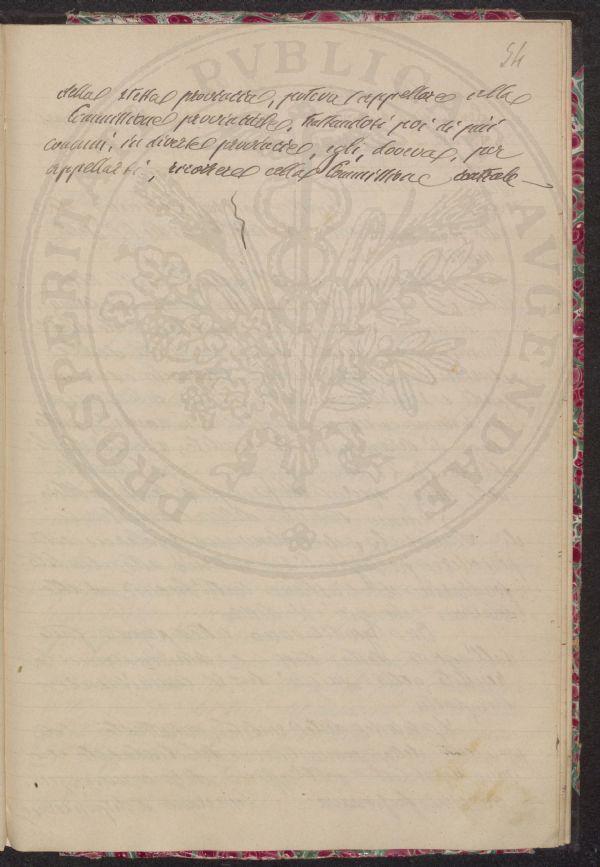 54
della stessa provincia, poteva appellare alla
Commissione provinciale. Trattandosi poi di più
comuni, in diverse provincie, egli, doveva, per
appellarsi, ricorrere alla Commissione centrale
PROSPERITATI PVBLICAE AVGENDAE